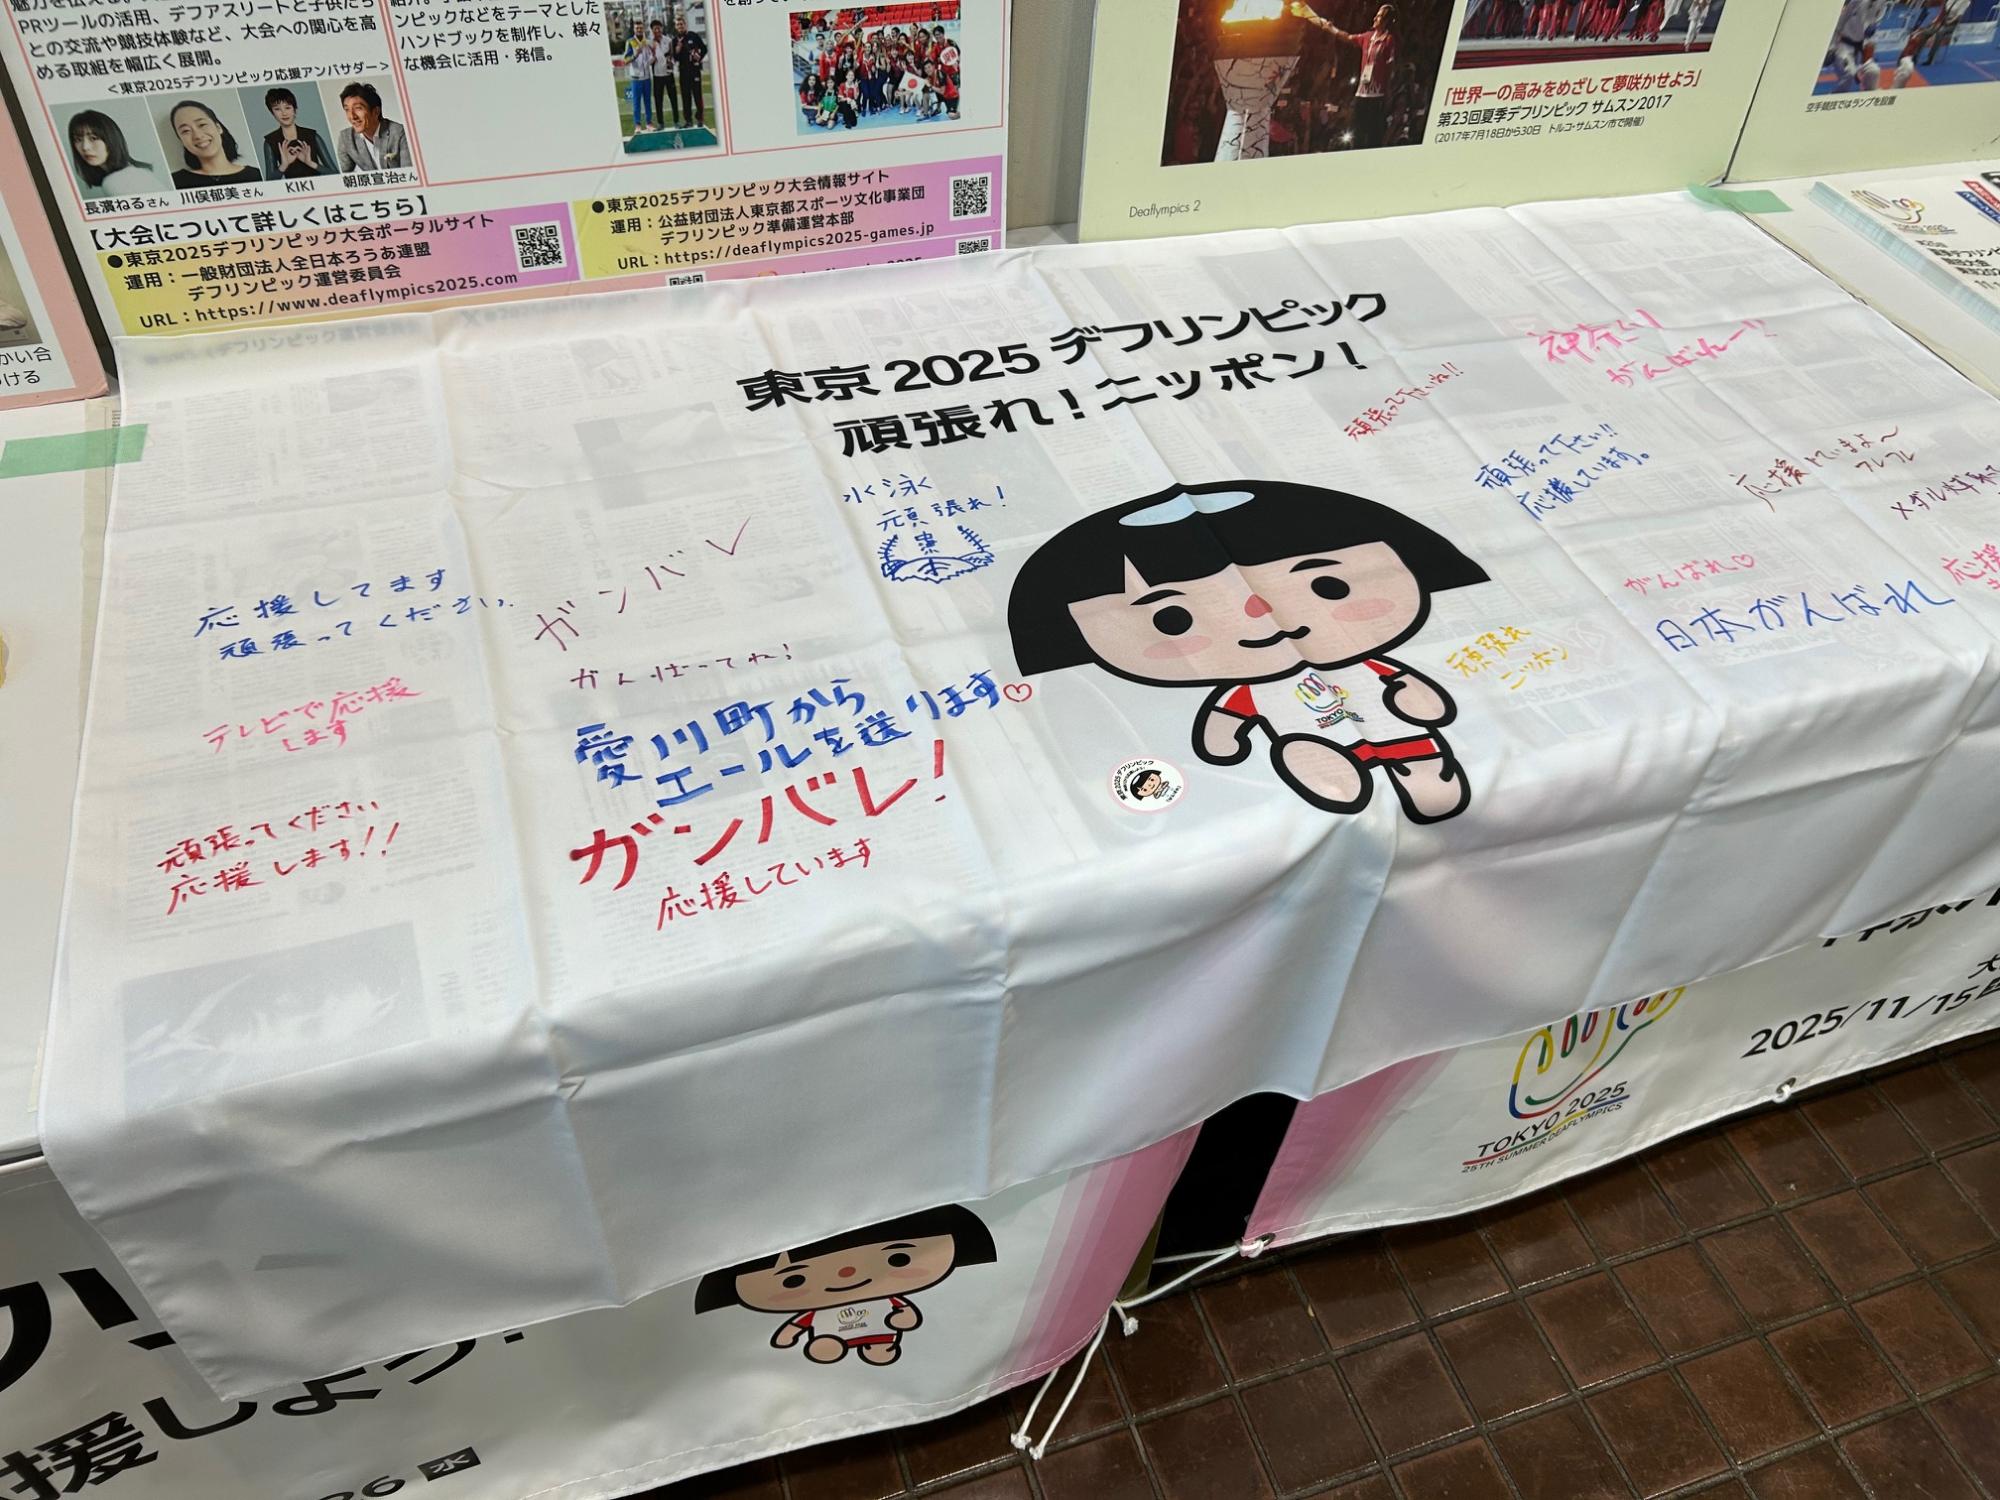 PRツールの活用、デフアスリートと子供たち
との交流や競技体験など、大会への関心を高
める取組を幅広く展開。
<東京2025デフリンピック応援アンバサダー>
長濱ねるさん 川俣郁美さん KIKI 朝原宣治さん
ンピックなどをテーマとした
ハンドブックを制作し、様々
な機会に活用・発信。
【大会について詳しくはこちら】
●東京2025デフリンピック大会ポータルサイト
運用：一般財団法人全日本ろうあ連盟
デフリンピック運営委員会
URL：https://www.deaflympics2025.com
●東京2025デフリンピック大会情報サイト
運用：公益財団法人東京都スポーツ文化事業団
デフリンピック準備運営本部
URL：https://deaflympics2025-games.jp
「世界一の高みをめざして夢咲かせよう」
第23回夏季デフリンピック サムスン2017
(2017年7月18日から30日 トルコ・サムスン市で開催)
Deaflympics 2
空手競技ではランプを設置
かい合
ける
東京2025 デフリンピック
頑張れ！ニッポン！
水泳
頑張れ！
応援してます
頑張ってください。
ガンバレ
がんばってね！
テレビで応援
します
愛川町から
エールを送ります♡
ガンバレ！
応援しています
頑張ってください
応援します!!
頑張って下さいね!!
神奈川
がんばれー!!
頑張って下さい!!
応援しています。
応援していまよ〜
フレフレ
がんばれ♡
日本がんばれ
頑張れ
ニッポン
応援
TOKYO
東京2025デフリンピック
2025/11/15
TOKYO 2025
25TH SUMMER DEAFLYMPICS
援しよう！
26 水